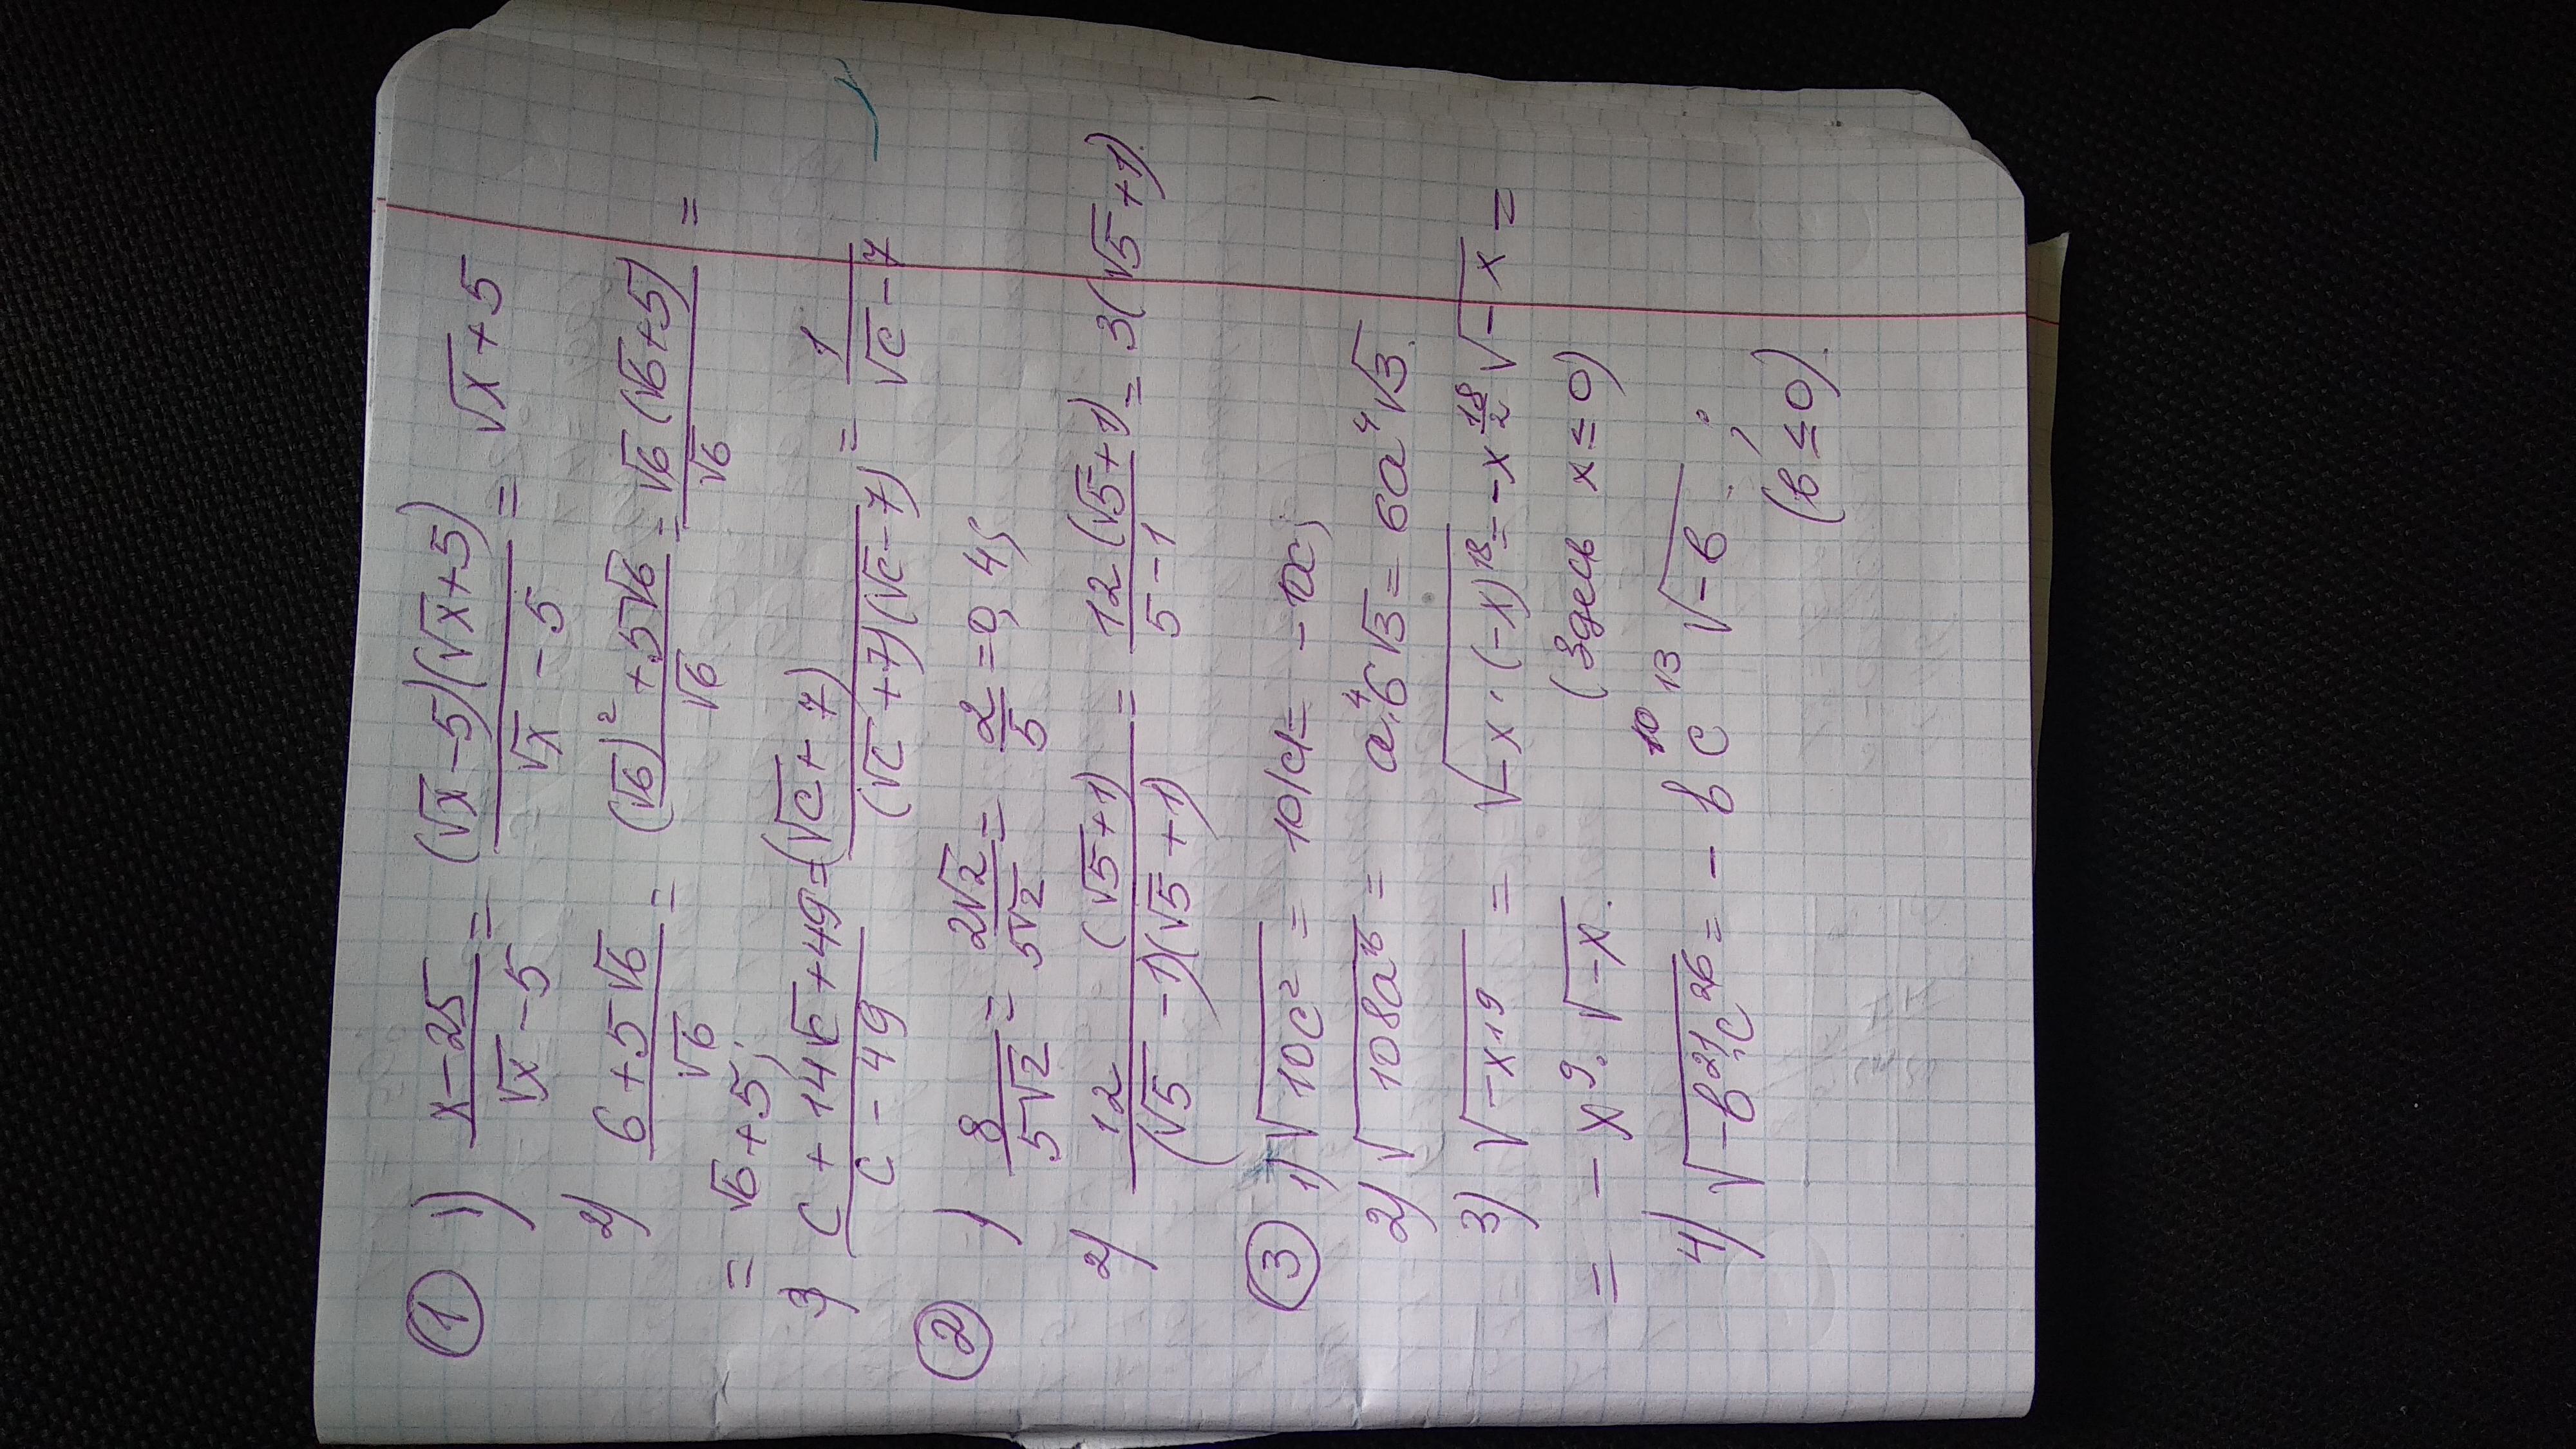 ① 1) (x-25)/(√x-5) = ((√x-5)(√x+5))/(√x-5) = √x+5
2) (6+5√6)/√6 = ((√6)²+5√6)/√6 = (√6(√6+5))/√6 =
= √6+5;
3) (c+14√c+49)/(c-49) = (√c+7)/((√c+7)(√c-7)) = 1/(√c-7)
② 1) 8/(5√2) = (2√2)/(5√2) = 2/5 = 0,4;
2) 12/((√5-1)(√5+1)) (√5+1) = (12(√5+1))/(5-1) = 3(√5+1).
③ 1) √(10c²) = 10|c| = -10c;
2) √(108a⁸) = a⁴·6√3 = 6a⁴√3.
3) √(-x¹⁹) = √(-x·(-x)¹⁸) = -x^(18/2) √-x =
= -x⁹·√-x. (Здесь x≤0)
4) √(-b²¹·c²⁶) = -b¹⁰c¹³√-b;
(b≤0).